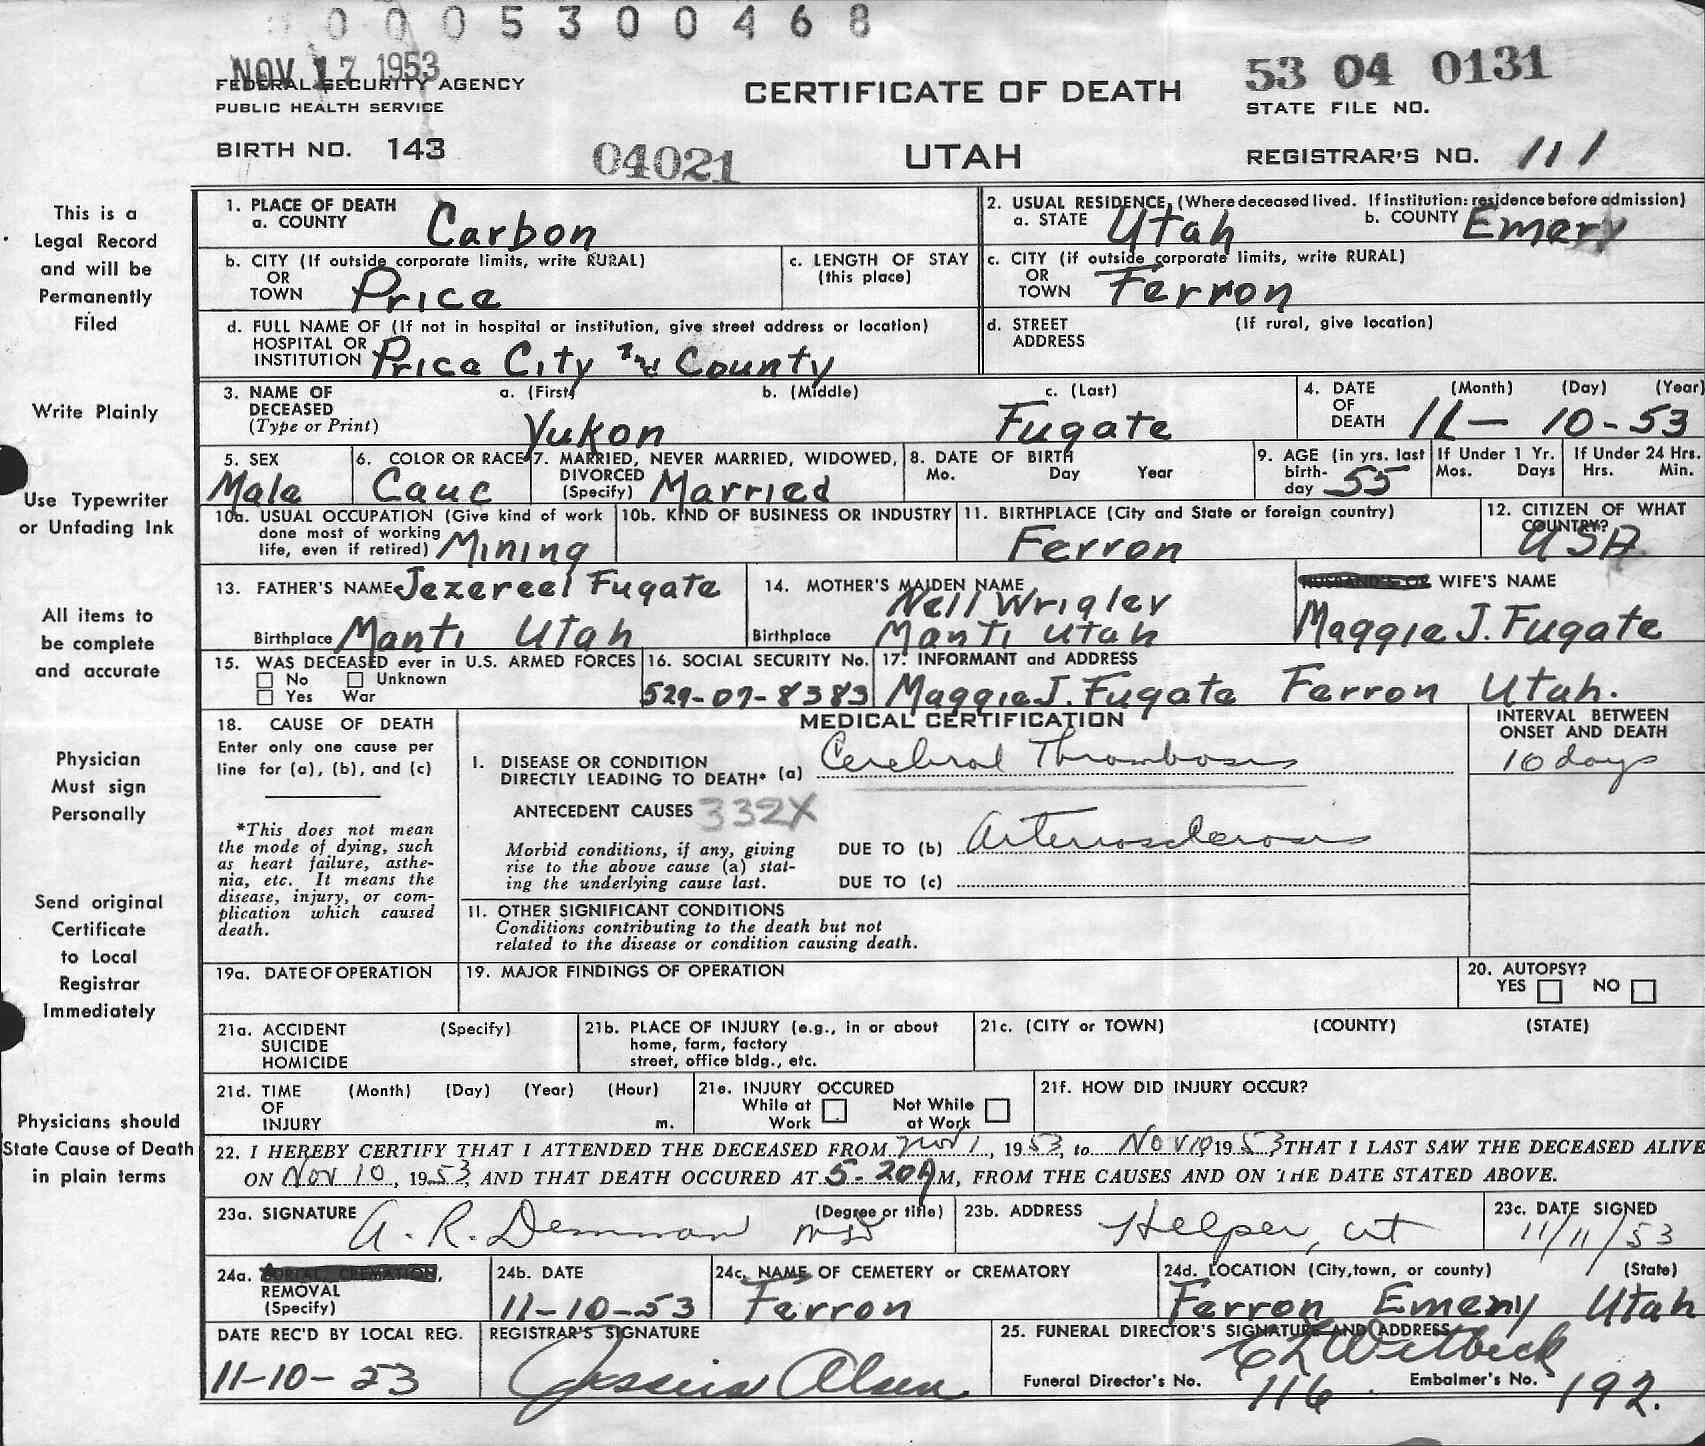 0005300468
NOV 17 1953
FEDERAL SECURITY AGENCY
PUBLIC HEALTH SERVICE
BIRTH NO. 143
04021
CERTIFICATE OF DEATH
UTAH
53 04 0131
STATE FILE NO.
REGISTRAR'S NO. 111
This is a
Legal Record
and will be
Permanently
Filed
Write Plainly
Use Typewriter
or Unfading Ink
All items to
be complete
and accurate
Physician
Must sign
Personally
Send original
Certificate
to Local
Registrar
Immediately
Physicians should
State Cause of Death
in plain terms
1. PLACE OF DEATH
a. COUNTY Carbon
2. USUAL RESIDENCE (Where deceased lived. If institution: residence before admission)
a. STATE Utah b. COUNTY Emery
b. CITY (If outside corporate limits, write RURAL)
OR
TOWN Price
c. LENGTH OF STAY
(this place)
c. CITY (if outside corporate limits, write RURAL)
OR
TOWN Ferron
d. FULL NAME OF (If not in hospital or institution, give street address or location)
HOSPITAL OR
INSTITUTION Price City and County
d. STREET (If rural, give location)
ADDRESS
3. NAME OF a. (First) b. (Middle) c. (Last)
DECEASED
(Type or Print) Yukon Fugate
4. DATE (Month) (Day) (Year)
OF
DEATH 11- 10-53
5. SEX
Male
6. COLOR OR RACE
Cauc
7. MARRIED, NEVER MARRIED, WIDOWED,
DIVORCED
(Specify) Married
8. DATE OF BIRTH
Mo. Day Year
9. AGE (in yrs. last
birth-
day 55
If Under 1 Yr.
Mos. Days
If Under 24 Hrs.
Hrs. Min.
10a. USUAL OCCUPATION (Give kind of work
done most of working
life, even if retired) Mining
10b. KIND OF BUSINESS OR INDUSTRY
11. BIRTHPLACE (City and State or foreign country)
Ferron
12. CITIZEN OF WHAT
COUNTRY?
USA
13. FATHER'S NAME Jezereel Fugate
Birthplace Manti Utah
14. MOTHER'S MAIDEN NAME
Nell Wrigley
Birthplace Manti Utah
HUSBAND'S OR WIFE'S NAME
Maggie J. Fugate
15. WAS DECEASED ever in U.S. ARMED FORCES
No Unknown
Yes War
16. SOCIAL SECURITY No.
529-07-8383
17. INFORMANT and ADDRESS
Maggie J. Fugate Ferron Utah.
18. CAUSE OF DEATH
Enter only one cause per
line for (a), (b), and (c)
*This does not mean
the mode of dying, such
as heart failure, asthe-
nia, etc. It means the
disease, injury, or com-
plication which caused
death.
MEDICAL CERTIFICATION
INTERVAL BETWEEN
ONSET AND DEATH
I. DISEASE OR CONDITION
DIRECTLY LEADING TO DEATH* (a) Cerebral Thrombosis
10 days
ANTECEDENT CAUSES 332X
Morbid conditions, if any, giving
rise to the above cause (a) stat-
ing the underlying cause last.
DUE TO (b) Arteriosclerosis
DUE TO (c)
II. OTHER SIGNIFICANT CONDITIONS
Conditions contributing to the death but not
related to the disease or condition causing death.
19a. DATE OF OPERATION
19. MAJOR FINDINGS OF OPERATION
20. AUTOPSY?
YES NO
21a. ACCIDENT (Specify)
SUICIDE
HOMICIDE
21b. PLACE OF INJURY (e.g., in or about
home, farm, factory
street, office bldg., etc.
21c. (CITY or TOWN) (COUNTY) (STATE)
21d. TIME (Month) (Day) (Year) (Hour)
OF
INJURY m.
21e. INJURY OCCURED
While at Not While
Work at Work
21f. HOW DID INJURY OCCUR?
22. I HEREBY CERTIFY THAT I ATTENDED THE DECEASED FROM Nov 1, 1953, to Nov 10 1953, THAT I LAST SAW THE DECEASED ALIVE
ON Nov 10, 1953, AND THAT DEATH OCCURED AT 5-20AM, FROM THE CAUSES AND ON THE DATE STATED ABOVE.
23a. SIGNATURE (Degree or title)
A. R. Demman
23b. ADDRESS
Helper, ut
23c. DATE SIGNED
11/11/53
24a. BURIAL, CREMATION,
REMOVAL
(Specify)
24b. DATE
11-10-53
24c. NAME OF CEMETERY or CREMATORY
Ferron
24d. LOCATION (City, town, or county) (State)
Ferron Emery Utah
DATE REC'D BY LOCAL REG.
11-10-53
REGISTRAR'S SIGNATURE
Olsen
25. FUNERAL DIRECTOR'S SIGNATURE AND ADDRESS
Witbeck
Funeral Director's No. 116 Embalmer's No. 192.